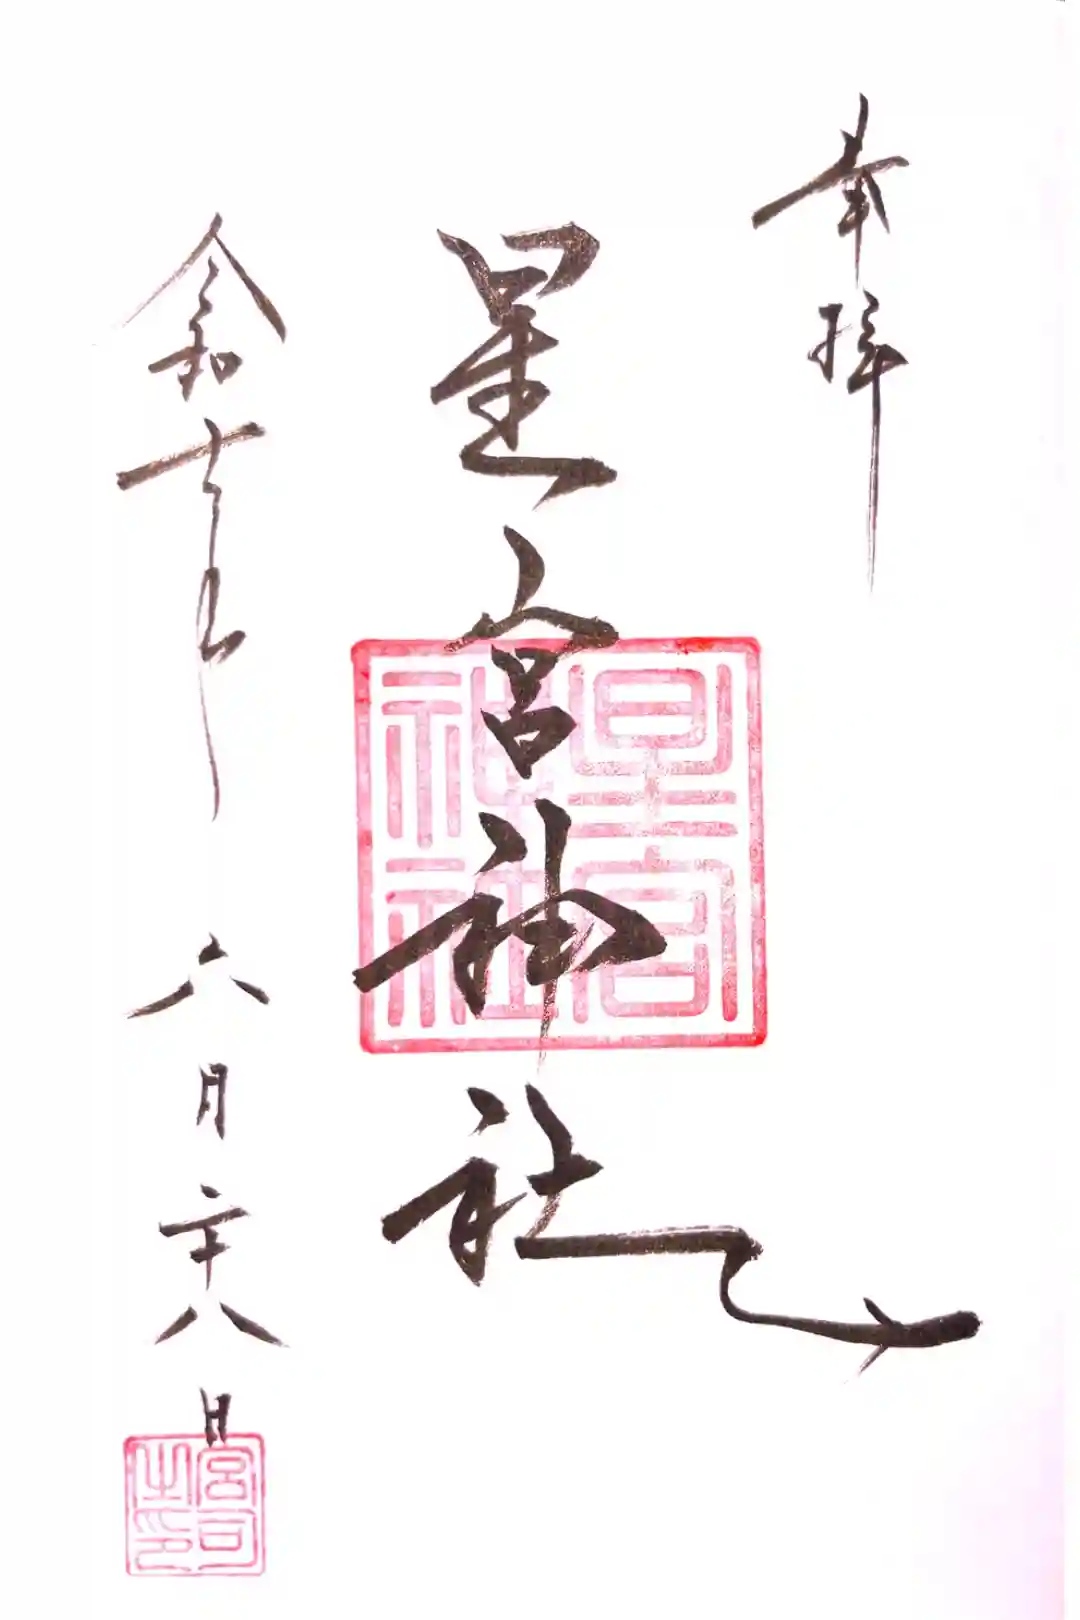 奉拝
星宮神社
令和年六月二十八日
星宮神社
宮司之印